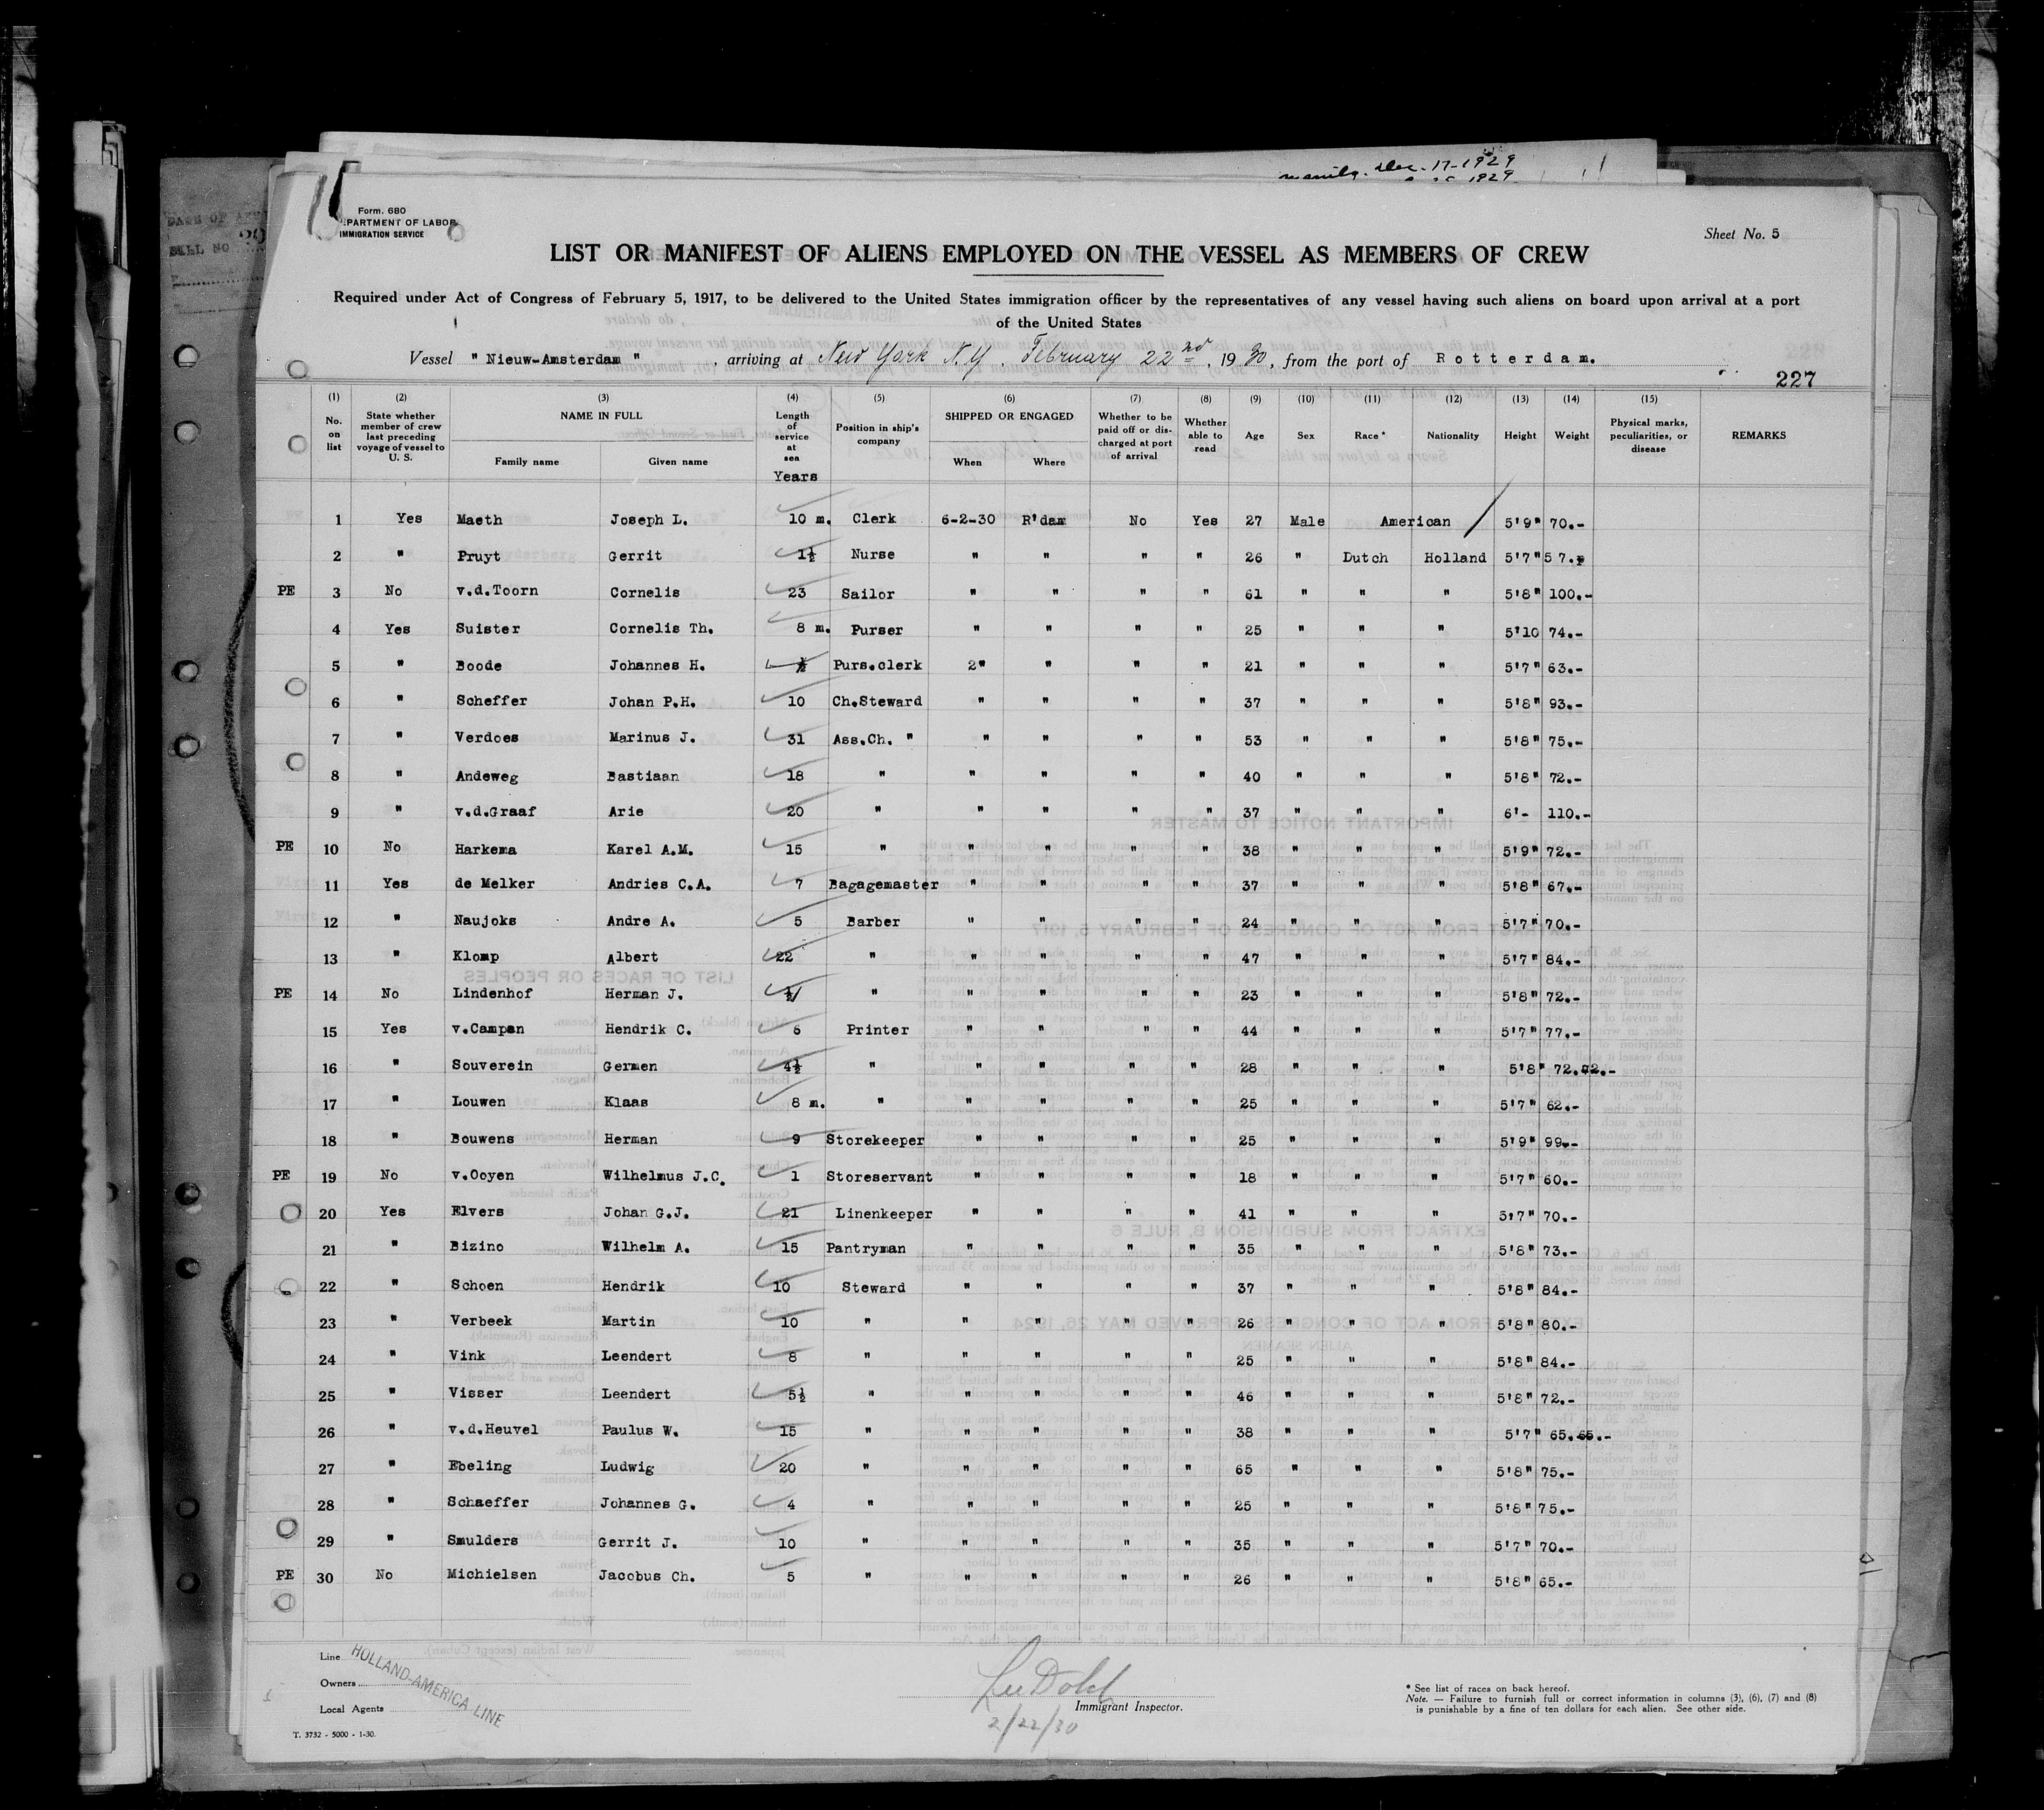 manila. Dec. 17-1929
1929
DATE OF
BILL NO
Form. 680
PARTMENT OF LABOR
IMMIGRATION SERVICE
Sheet No. 5
LIST OR MANIFEST OF ALIENS EMPLOYED ON THE VESSEL AS MEMBERS OF CREW
Required under Act of Congress of February 5, 1917, to be delivered to the United States immigration officer by the representatives of any vessel having such aliens on board upon arrival at a port
of the United States
Vessel " Nieuw-Amsterdam " , arriving at New York N.Y. February 22nd, 1930, from the port of Rotterdam.
227
(1) No. on list (2) State whether member of crew last preceding voyage of vessel to U. S. (3) NAME IN FULL Family name Given name (4) Length of service at sea Years (5) Position in ship's company (6) SHIPPED OR ENGAGED When Where (7) Whether to be paid off or discharged at port of arrival (8) Whether able to read (9) Age (10) Sex (11) Race * (12) Nationality (13) Height (14) Weight (15) Physical marks, peculiarities, or disease REMARKS
1 Yes Maeth Joseph L. 10 m. Clerk 6-2-30 R'dam No Yes 27 Male American 5'9" 70.-
2 " Pruyt Gerrit 1½ Nurse " " " " 26 " Dutch Holland 5'7" 57.-
PE 3 No v.d.Toorn Cornelis 23 Sailor " " " " 61 " " " 5'8" 100.-
4 Yes Suister Cornelis Th. 8 m. Purser " " " " 25 " " " 5'10 74.-
5 " Boode Johannes H. ½ Purs.clerk 2" " " " 21 " " " 5'7" 63.-
6 " Scheffer Johan P.H. 10 Ch.Steward " " " " 37 " " " 5'8" 93.-
7 " Verdoes Marinus J. 31 Ass.Ch. " " " " " 53 " " " 5'8" 75.-
8 " Andeweg Bastiaan 18 " " " " " 40 " " " 5'8" 72.-
9 " v.d.Graaf Arie 20 " " " " " 37 " " " 6'- 110.-
PE 10 No Harkema Karel A.M. 15 " " " " " 38 " " " 5'9" 72.-
11 Yes de Melker Andries C.A. 7 Bagagemaster " " " " 37 " " " 5'8" 67.-
12 " Naujoks Andre A. 5 Barber " " " " 24 " " " 5'7" 70.-
13 " Klomp Albert 22 " " " " " 47 " " " 5'7" 84.-
PE 14 No Lindenhof Herman J. ½ " " " " " 23 " " " 5'8" 72.-
15 Yes v.Campen Hendrik C. 6 Printer " " " " 44 " " " 5'7" 77.-
16 " Souverein Germen 4½ " " " " " 28 " " " 5'8" 72.72.-
17 " Louwen Klaas 8 m. " " " " " 25 " " " 5'7" 62.-
18 " Bouwens Herman 9 Storekeeper " " " " 25 " " " 5'9" 99.-
PE 19 No v.Ooyen Wilhelmus J.C. 1 Storeservant " " " " 18 " " " 5'7" 60.-
20 Yes Elvers Johan G.J. 21 Linenkeeper " " " " 41 " " " 5'7" 70.-
21 " Bizino Wilhelm A. 15 Pantryman " " " " 35 " " " 5'8" 73.-
22 " Schoen Hendrik 10 Steward " " " " 37 " " " 5'8" 84.-
23 " Verbeek Martin 10 " " " " " 26 " " " 5'8" 80.-
24 " Vink Leendert 8 " " " " " 25 " " " 5'8" 84.-
25 " Visser Leendert 5½ " " " " " 46 " " " 5'8" 72.-
26 " v.d.Heuvel Paulus W. 15 " " " " " 38 " " " 5'7" 65.65.-
27 " Ebeling Ludwig 20 " " " " " 65 " " " 5'8" 75.-
28 " Schaeffer Johannes G. 4 " " " " " 25 " " " 5'8" 75.-
29 " Smulders Gerrit J. 10 " " " " " 35 " " " 5'7" 70.-
PE 30 No Michielsen Jacobus Ch. 5 " " " " " 26 " " " 5'8" 65.-
Line
Owners
Local Agents
HOLLAND-AMERICA LINE
Lee Dold
Immigrant Inspector.
2/22/30
* See list of races on back hereof.
Note. — Failure to furnish full or correct information in columns (3), (6), (7) and (8)
is punishable by a fine of ten dollars for each alien. See other side.
T. 3732 - 5000 - 1-30.